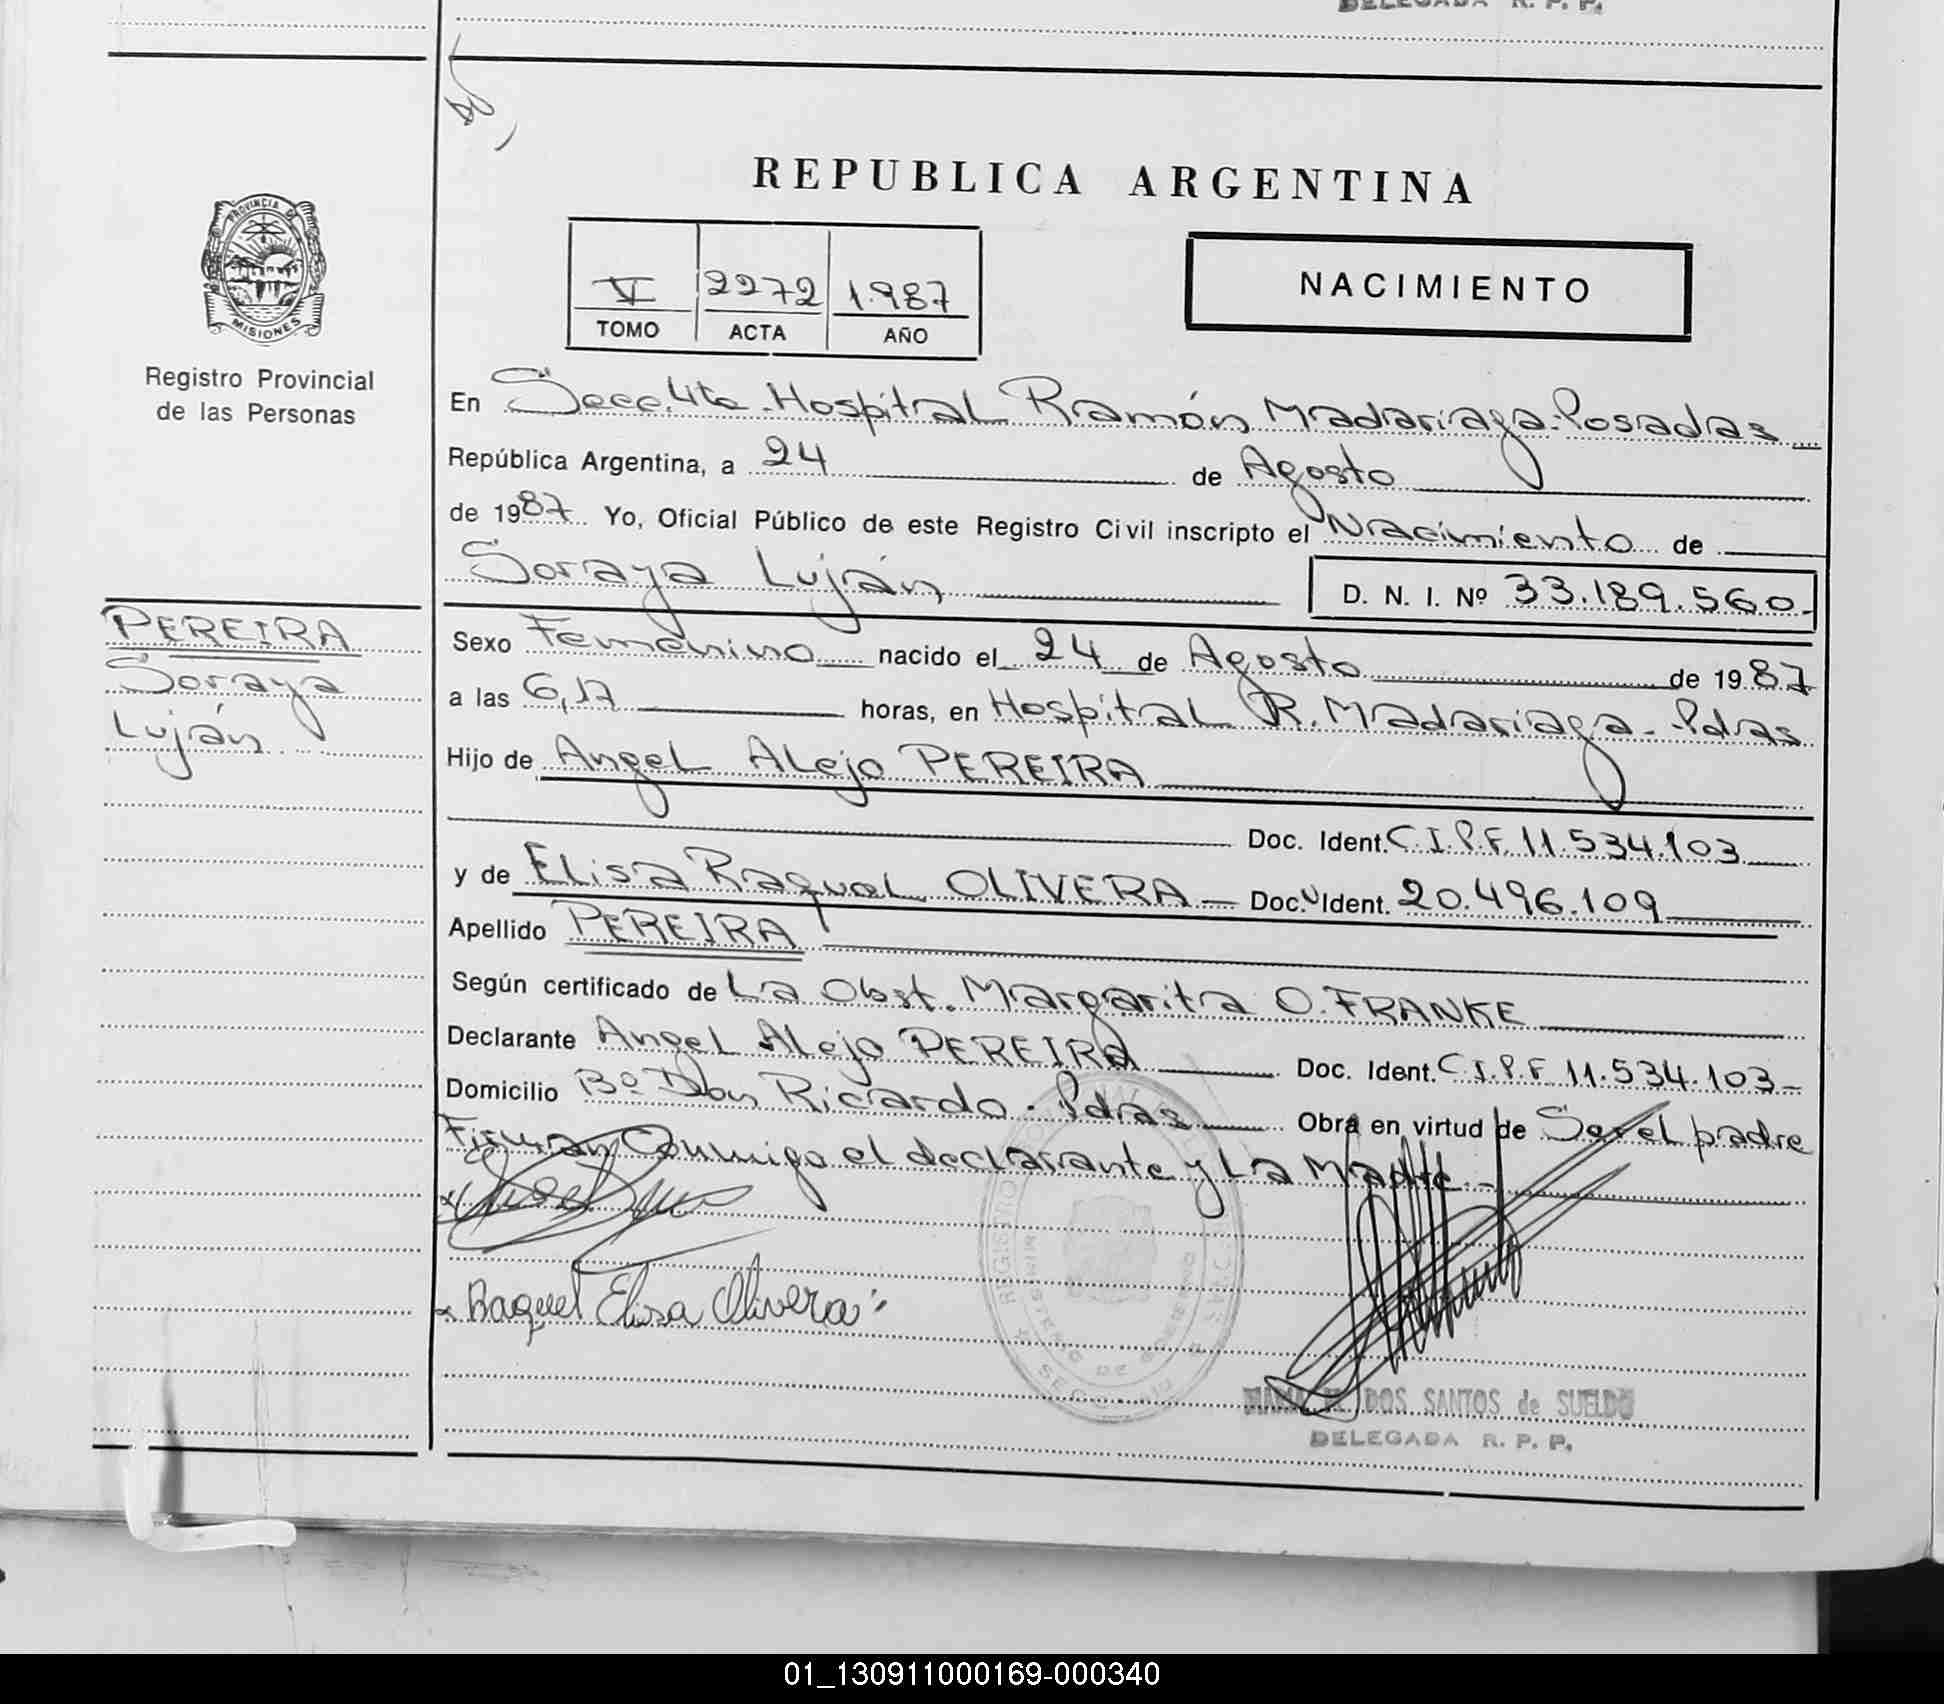 DELEGADA R. P. P.
REPUBLICA ARGENTINA
V 2272 1.987
TOMO ACTA AÑO
NACIMIENTO
PROVINCIA DE
MISIONES
Registro Provincial
de las Personas
En Secc. 4ta. Hospital Ramón Madariaga-Posadas
República Argentina, a 24 de Agosto
de 1987. Yo, Oficial Público de este Registro Civil inscripto el Nacimiento de
Soraya Luján D. N. I. Nº 33.189.560.-
PEREIRA
Soraya
Luján
Sexo Femenino nacido el 24 de Agosto de 1987
a las 6,17 horas, en Hospital R. Madariaga - Pdas
Hijo de Angel Alejo PEREIRA
Doc. Ident. C.I.P.F. 11.534.103
y de Elisa Raquel OLIVERA Doc. Ident. 20.496.109
Apellido PEREIRA
Según certificado de La Obst. Margarita O. FRANKE
Declarante Angel Alejo PEREIRA Doc. Ident. C.I.P.F 11.534.103-
Domicilio Bº Don Ricardo - Pdas Obra en virtud de Ser el padre
Firman Conmigo el declarante y La Madre.-
Raquel Elisa Olivera
REGISTRO
MINISTERIO DE GOBIERNO
DOS SANTOS de SUELDO
DELEGADA R. P. P.
01_130911000169-000340